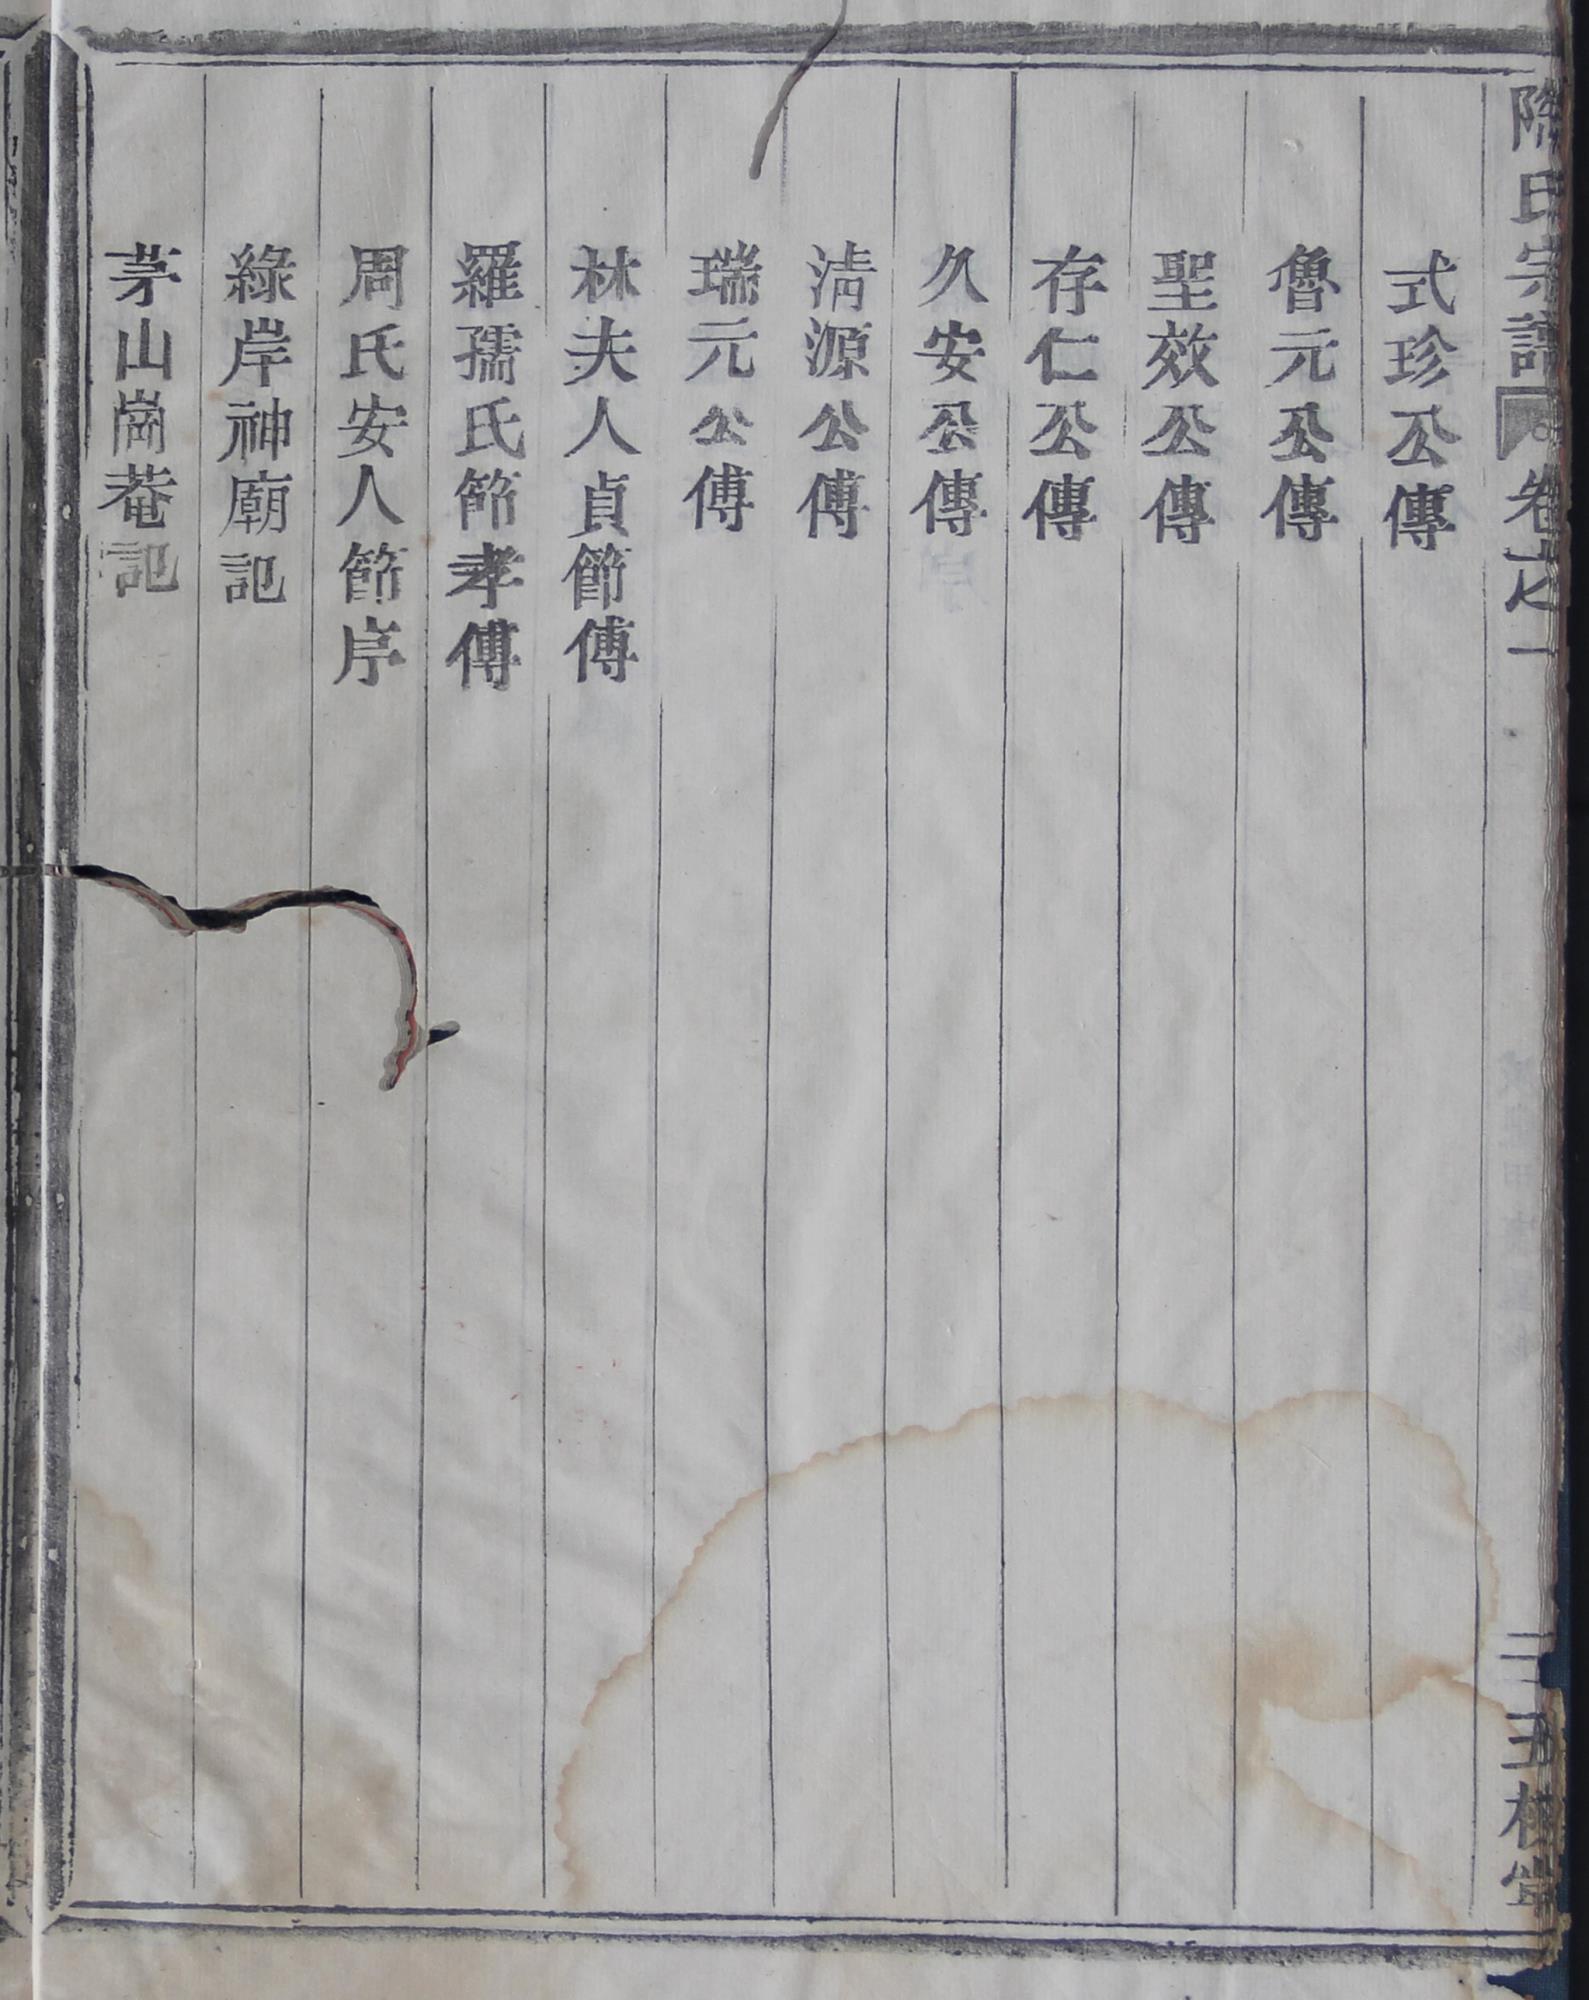 氏宗譜 卷之一
二 五桂堂
式珍公傳
魯元公傳
聖效公傳
存仁公傳
久安公傳
淸源公傳
瑞元公傳
林夫人貞節傳
羅孺氏節孝傳
周氏安人節序
綠岸神廟記
茅山崗菴記